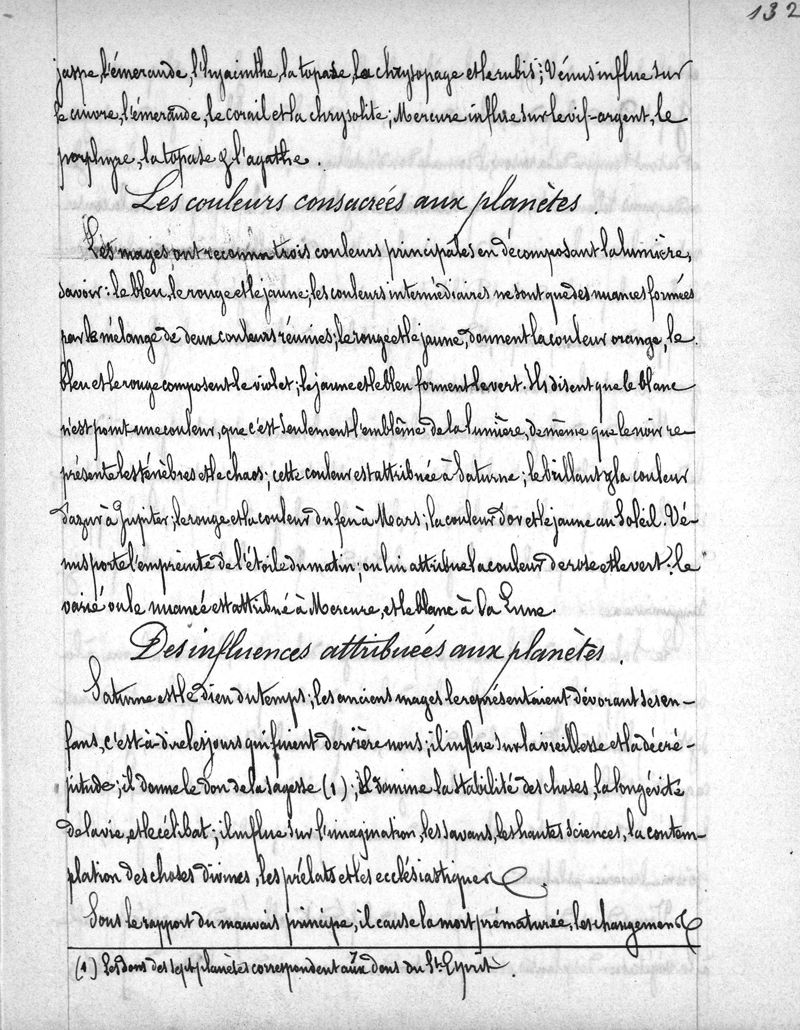 132
jaspe, l'émeraude, l'hyacinthe, la topase, la chrysopage et le rubis; Vénus influe sur
le cuivre, l'émeraude, le corail et la chrysolite; Mercure influe sur le vif-argent, le
porphyre, la topase & l'agathe.
Les couleurs consacrées aux planètes.
Les mages, ont reconnu trois couleurs principales en décomposant la lumière,
savoir: le bleu, le rouge et le jaune; les couleurs intermédiaires ne sont que des nuances formées
par le mélange de deux couleurs réunies; le rouge et le jaune, donnent la couleur orange, le
bleu et le rouge composent le violet; le jaune et le bleu forment le vert. Ils disent que le blanc
n'est point une couleur, que c'est seulement l'emblême de la lumière, de même que le noir re-
présente les ténèbres et le chaos; cette couleur est attribuée à Saturne; le brillant & la couleur
d'azur à Jupiter; le rouge et la couleur du feu à Mars; la couleur d'or et le jaune au Soleil. Vé-
nus porte l'empreinte de l'étoile du matin; on lui attribue la couleur de rose et le vert; le
varié ou le nuancé est attribué à Mercure, et le blanc à la Lune.
Des influences attribuées aux planètes.
Saturne est le dieu du temps; les anciens mages le représentaient dévorant ses en-
fans, c'est-à-dire les jours qui fuient derrière nous; il influe sur la vieillesse et la décré-
pitude; il donne le don de la sagesse (1); il domine la stabilité des choses, la longévité
de la vie, et le célibat; il influe sur l'imagination, les savans, les hautes sciences, la contem-
plation des choses divines, les prélats et les ecclésiastiques.
Sous le rapport du mauvais principe, il cause la mort prématurée, les changemens
(1) Les dons des sept planètes correspondent aux 7 dons du St. Esprit.